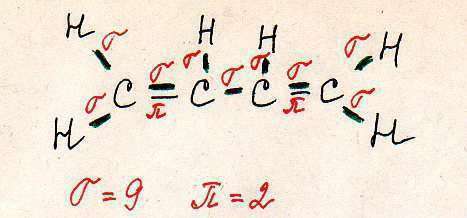 H σ H H σ H
σ σ
σ C σ C σ C σ C σ
H π π H
σ = 9 π = 2